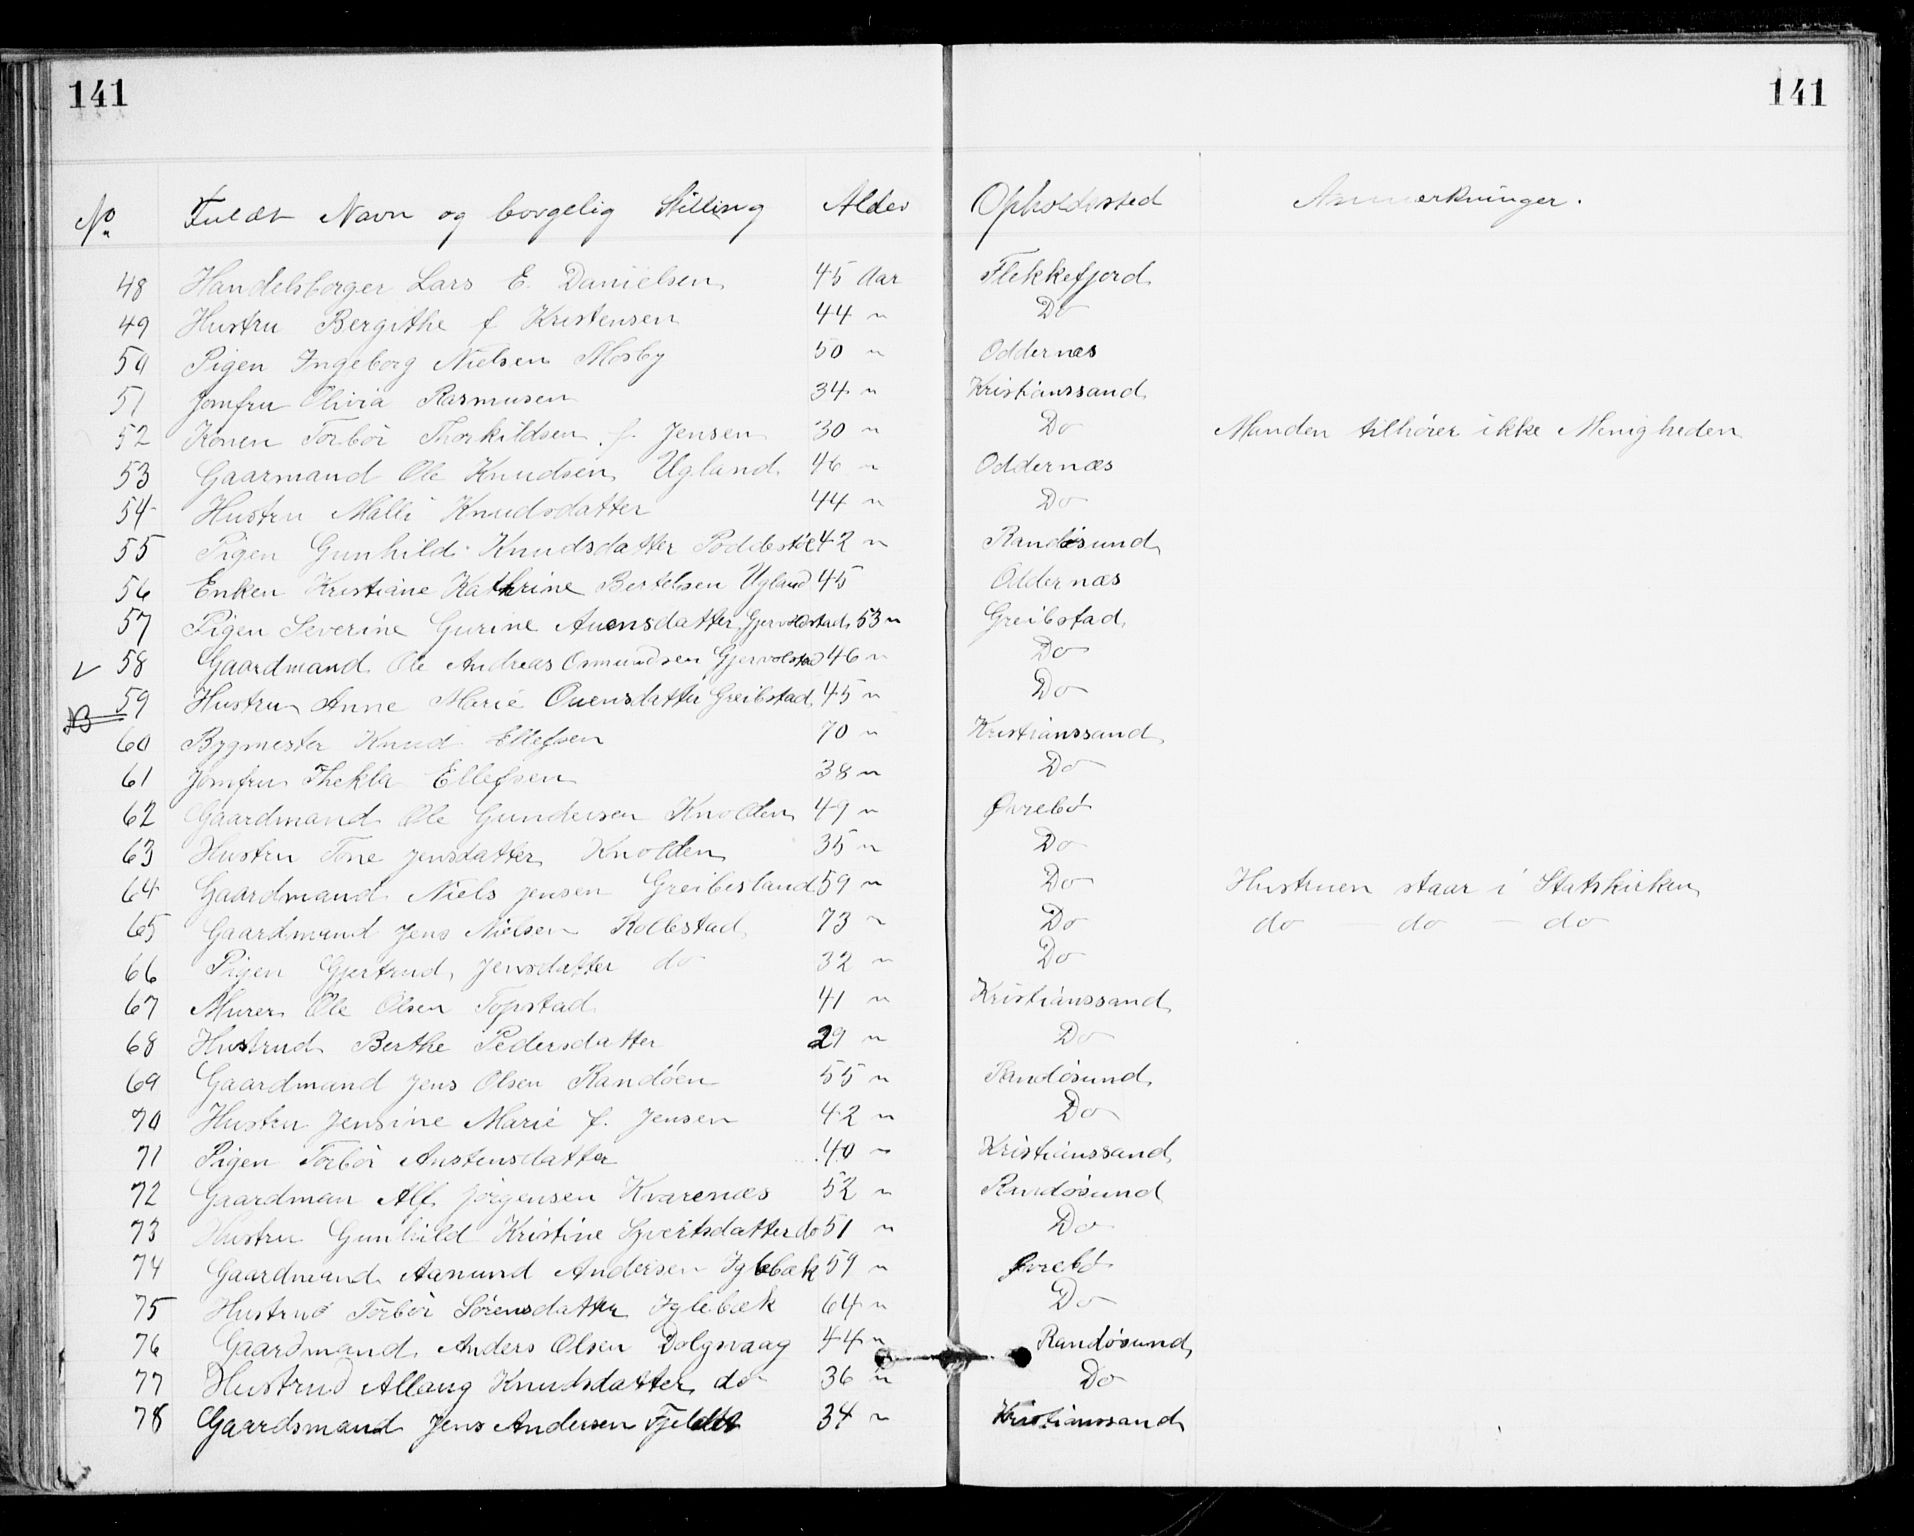 141 141
No Fuldt Navn og borgelig Stilling Alder Opholdssted Anmerkninger.
48 Handelsborger Lars E. Danielsen 45 Aar Flekkefjord
49 Hustru Bergithe f Kristensen 44 " Do
50 Pigen Ingeborg Nielsen Mosby 50 " Oddernæs
51 Jomfru Olivia Rasmusen 34 " Kristianssand
52 Konen Torbör Thorkildsen f. Jensen 30 " Do Manden tilhörer ikke Menigheden
53 Gaarmand Ole Knudsen Ugland 46 " Oddernæs
54 Hustru Malli Knudsdatter 44 " Do
55 Pigen Gunhild Knudsdatter 42 " Randösund
56 Enken Kristiane Kathrine Bertelsen Ugland 45 Oddernæs
57 Pigen Severine Gurine Auensdatter Gjervoldstad 53 " Greibstad
58 Gaardmand Ole Andreas Osmundsen Gjervolstad 46 " Do
59 Hustru Anne Marie Ouensdatter Greibstad 45 " Do
60 Bygmester Knud Ellefsen 70 " Kristianssand
61 Jomfru Thekla Ellefsen 38 " Do
62 Gaardmand Ole Gundersen Knolden 49 " Øvrebö
63 Hustru Tone Jensdatter Knolden 35 " Do
64 Gaardmand Niels Jensen Greibesland 59 " Do Hustruen staar i Statskirken
65 Gaardmand Jens Nielsen Rollestad 73 " Do do — do — do
66 Pigen Gjertrud Jensdatter do 32 " Do
67 Murer Ole Olsen Topstad 41 " Kristianssand
68 Hustrud Berthe Pedersdatter 29 " Do
69 Gaardmand Jens Olsen Randöen 55 " Randösund
70 Hustru Jensine Marie f. Jensen 42 " Do
71 Pigen Torbör Anstensdatter 40 " Kristianssand
72 Gaardman Alf Jörgensen Kvarenæs 52 " Randösund
73 Hustru Gunhild Kristine Syvertsdatter do 51 " Do
74 Gaardmand Aanund Andersen Iglebæk 59 " Øvrebö
75 Hustrud Torbör Sörensdatter Iglebæk 64 " Do
76 Gaardmand Anders Olsen Dolgvaag 44 " Randösund
77 Hustrud Allaug Knudsdatter do 36 " Do
78 Gaardsmand Jens Andersen Fjeldt 34 " Kristianssand